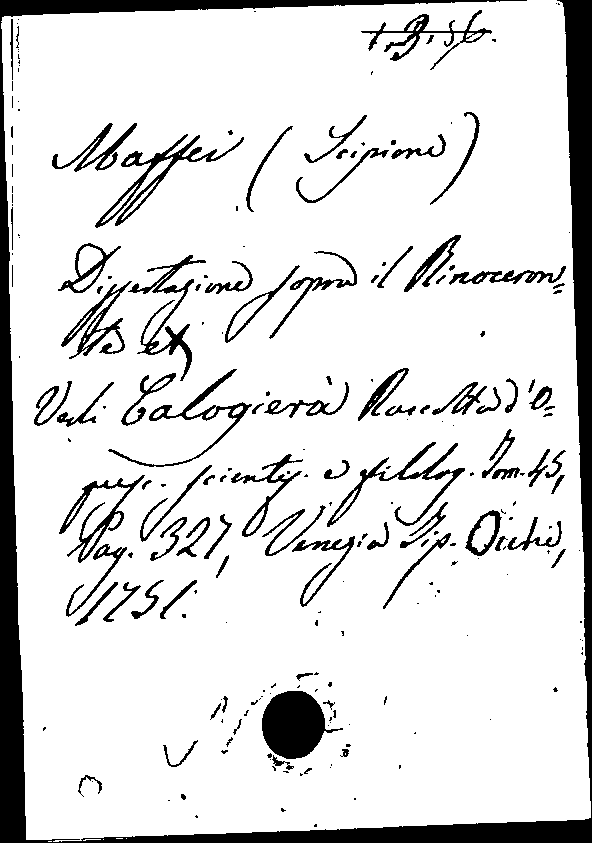 1.3.56.
Maffei (Scipione)
Dissertazione sopra il Rinoceron=
te
Vedi Calogierà Raccolta d'O=
pusc. scientif. e filolog. Tom. 45,
Pag. 327, Venezia Tip. Occhi,
1751.